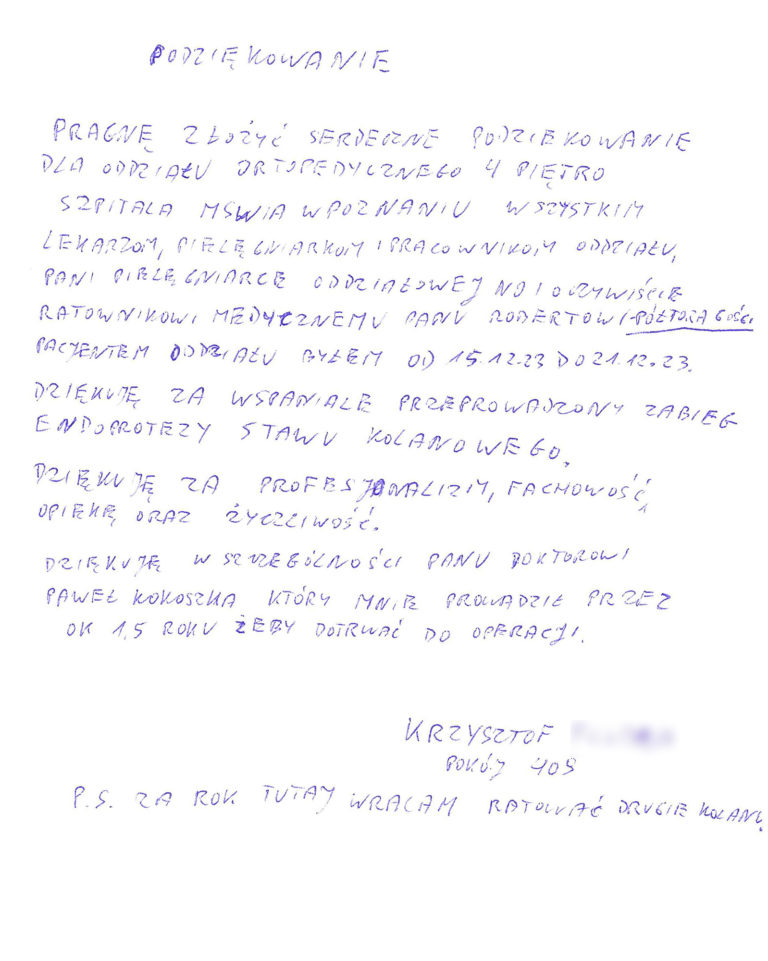 PODZIĘKOWANIE
PRAGNĘ ZŁOŻYĆ SERDECZNE PODZIĘKOWANIE
DLA ODDZIAŁU ORTOPEDYCZNEGO 4 PIĘTRO
SZPITALA MSWIA W POZNANIU WSZYSTKIM
LEKARZOM, PIELĘGNIARKOM I PRACOWNIKOM ODDZIAŁU,
PANI PIELĘGNIARCE ODDZIAŁOWEJ NO I OCZYWIŚCIE
RATOWNIKOWI MEDYCZNEMU PANU ROBERTOWI-PÓŁTORA GOŚCI
PACJENTEM ODDZIAŁU BYŁEM OD 15.12.23 DO 21.12.23.
DZIĘKUJĘ ZA WSPANIALE PRZEPROWADZONY ZABIEG
ENDOPROTEZY STAWU KOLANOWEGO.
DZIĘKUJĘ ZA PROFESJONALIZM, FACHOWOŚĆ,
OPIEKĘ ORAZ ŻYCZLIWOŚĆ.
DZIĘKUJĘ W SZCZEGÓLNOŚCI PANU DOKTOROWI
PAWEŁ KOKOSZKA KTÓRY MNIE PROWADZIŁ PRZEZ
OK 1,5 ROKU ŻEBY DOTRWAĆ DO OPERACJI.
KRZYSZTOF
POKÓJ 409
P.S. ZA ROK TUTAJ WRACAM RATOWAĆ DRUGIE KOLANO